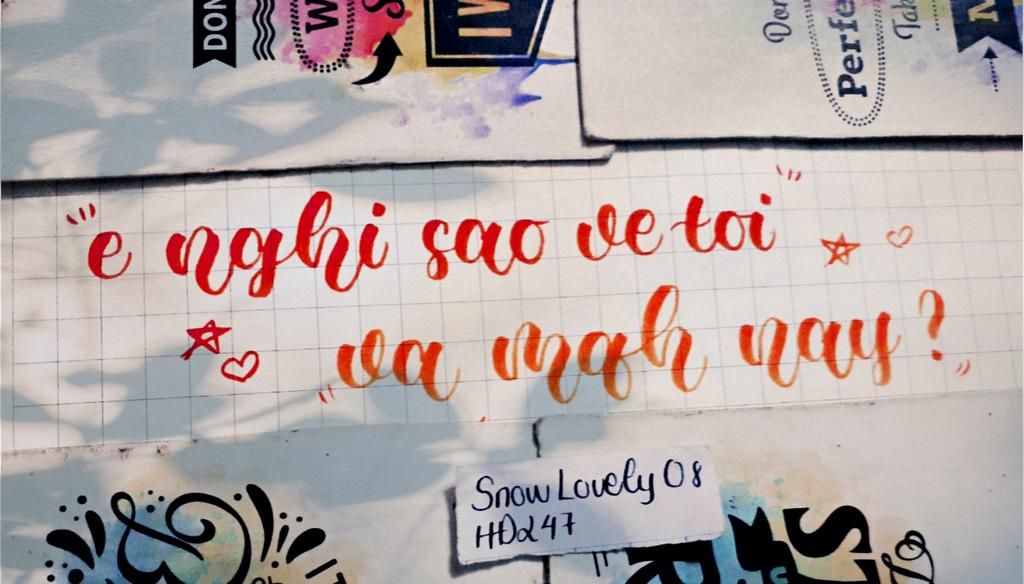 DON
W
S
IV
Don
Perfe
Tak
N
"e nghi sao ve toi"
"va mqh nay?"
Snow Lovely 08
HD247
&